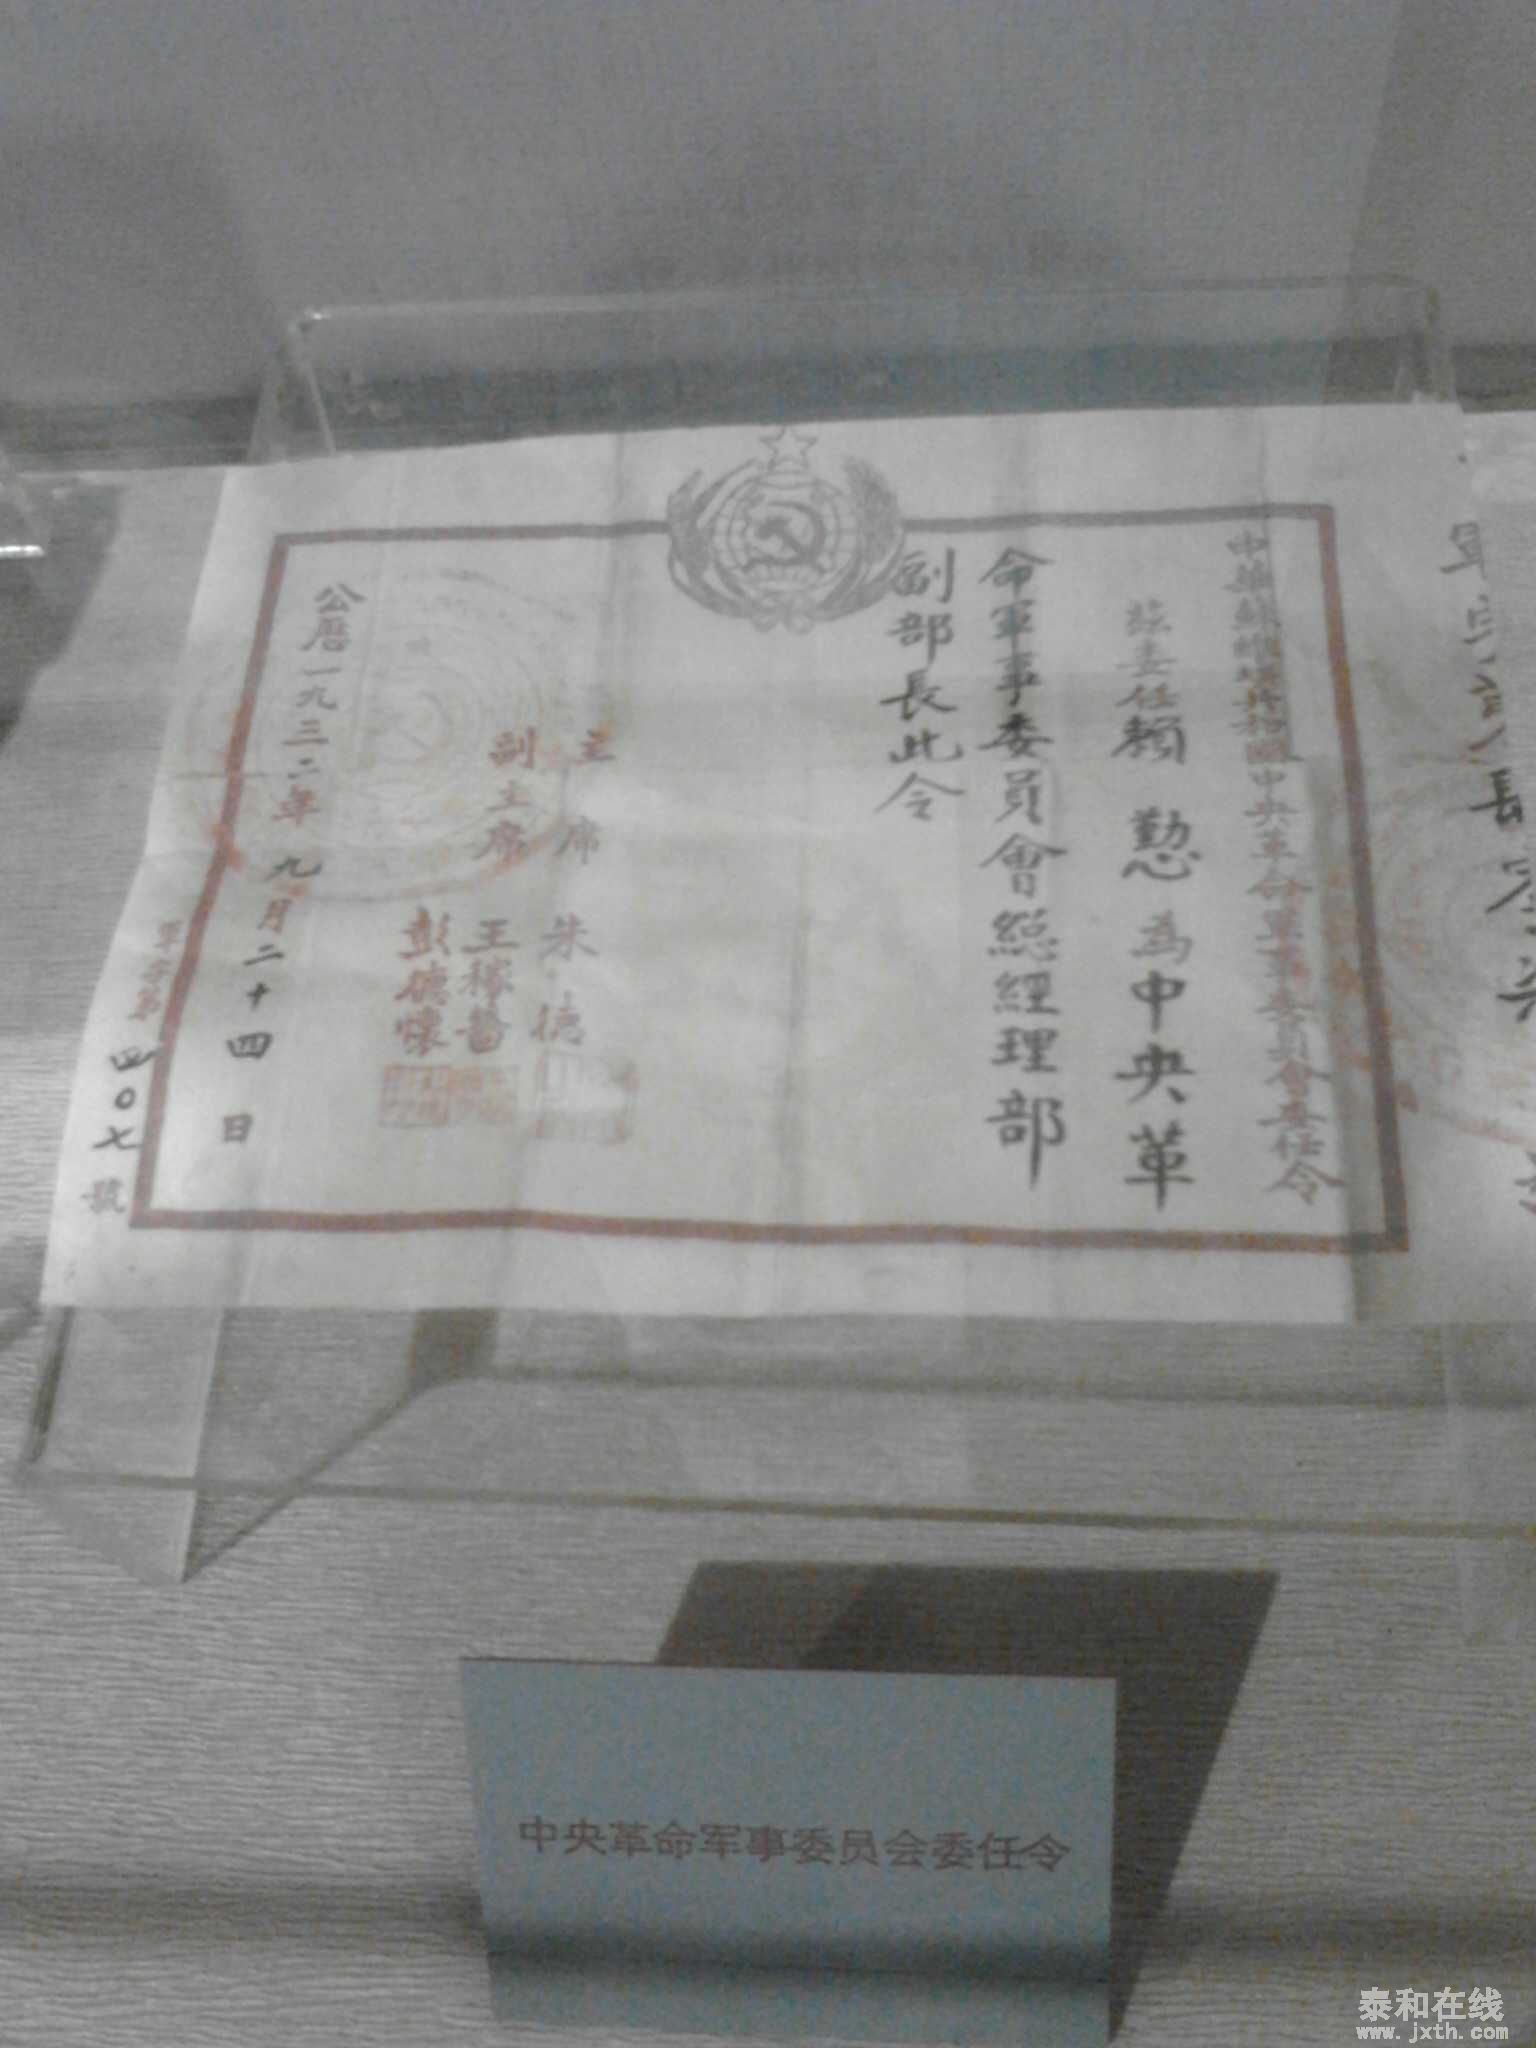 中華蘇維埃共和國中央革命軍事委員會委任令
茲委任賴 懃 為中央革
命軍事委員會總經理部
副部長此令
主 席 朱 德
副主席 王稼薔
彭德懷
公曆一九三二年 九月二十四日
軍字第四〇七號
中央革命军事委员会委任令
泰和在线
www.jxth.com